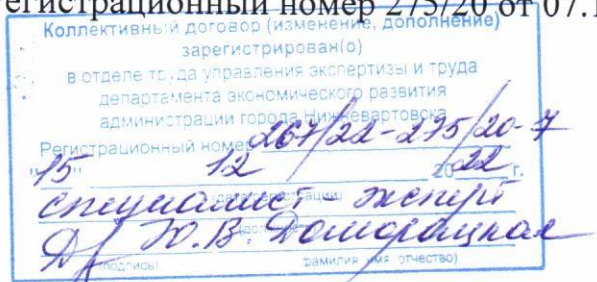 регистрационный номер 275/20 от 07.1
Коллективный договор (изменение, дополнение)
зарегистрирован(о)
в отделе труда управления экспертизы и труда
департамента экономического развития
администрации города Нижневартовска
Регистрационный номер 267/22-275/20-7
"15" 12 2022 г.
(дата регистрации)
специалист - эксперт
(должность)
Ю.В. Доморацкая
(подпись) фамилия имя отчество)